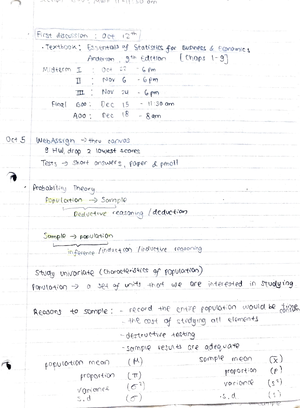 First discussion : Oct 12th
- Textbook: Essentials of Statistics for Business & Economics
Anderson, 9th Edition [Chaps 1-9]
Midterm I : Oct - 6pm
II : Nov 6 - 6pm
III : Nov 20 - 6pm
Final 600: Dec 15 - 11:30am
A00: Dec 18 - 8am
Oct 5 WebAssign → thru canvas
9 HW, drop 2 lowest scores
Tests → short answers, paper & pencil
• Probability Theory
Population → Sample
Deductive reasoning / deduction
Sample → population
inference / induction / inductive reasoning
Study univariate (characteristics of population)
Population → a set of units that we are interested in studying
Reasons to sample: - record the entire population would be
- the cost of studying all elements
- destructive testing
- sample results are adequate
population mean (μ) sample mean (x̄)
proportion (π) proportion (p)
variance (σ²) variance (s²)
s.d (σ) s.d (s)